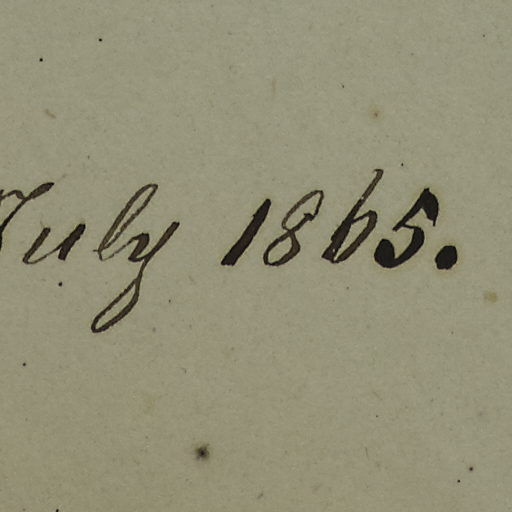 July 1865.